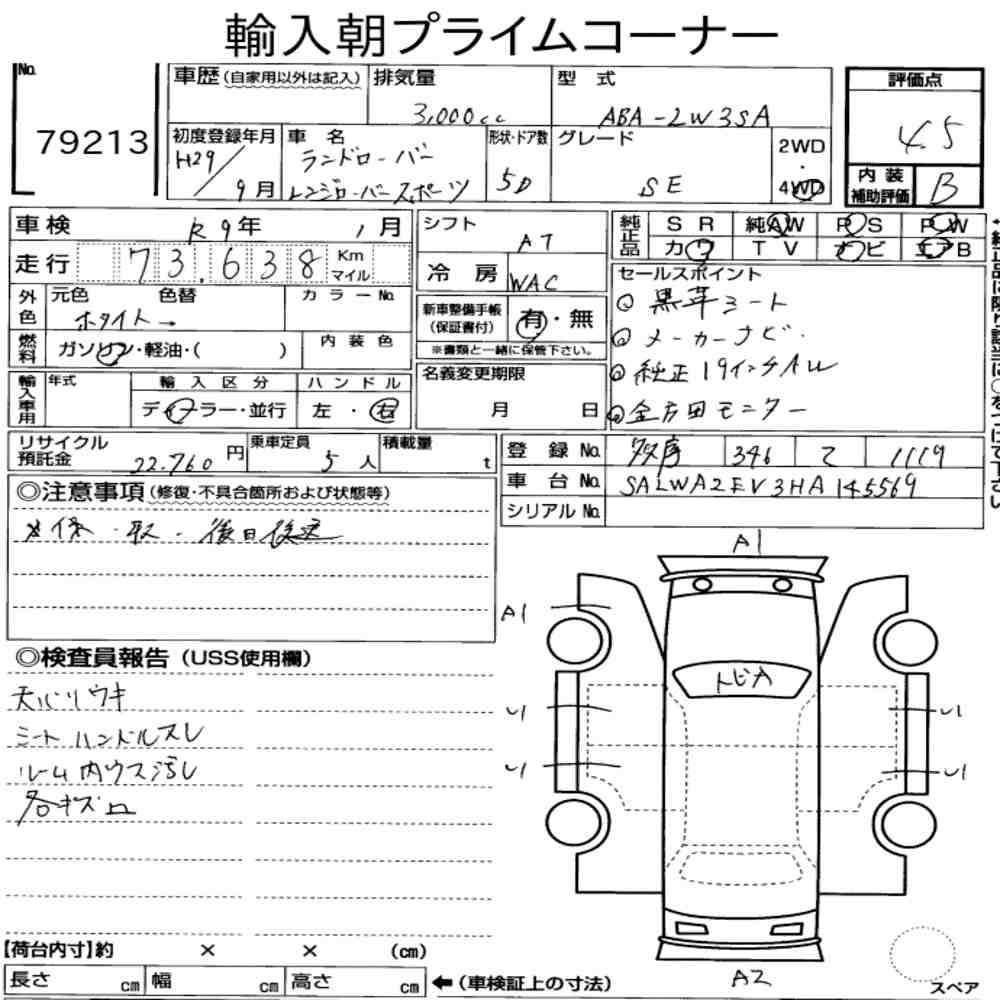 輸入朝プライムコーナー
No.
79213
車歴(自家用以外は記入)
排気量
3,000cc
型 式
ABA-LW3SA
評価点
4.5
内装補助評価
B
初度登録年月
H29/9月
車 名
ランドローバー
レンジローバースポーツ
形状・ドア数
5D
グレード
SE
2WD
・
4WD
車検
R9年 1月
走行
73,638
Km
マイル
シフト
AT
冷 房
WAC
純正品
SR 純AW PS PW
カワ TV ナビ エアB
外色
元色 色替
ホワイト→
カラーNo.
燃料
ガソリン・軽油・( )
内装色
新車整備手帳
(保証書付)
有・無
※書類と一緒に保管下さい。
セールスポイント
◎黒革シート
◎メーカーナビ.
◎純正19インチAW
◎全方囲モニター
輸入車用
年式
輸入区分
ディーラー・並行
ハンドル
左・右
名義変更期限
月 日
リサイクル預託金
22,760円
乗車定員
5人
積載量
t
登 録 No.
多摩 346 て 1119
車 台 No.
SALWA2EV3HA145569
シリアル No.
◎注意事項(修復・不具合箇所および状態等)
取・後日後送
◎検査員報告(USS使用欄)
天バリウキ
シート ハンドルスレ
ルーム内ウス汚レ
各キズ口
A1
A1
トビA
A2
【荷台内寸】約 × × (cm)
長さ cm 幅 cm 高さ cm
←(車検証上の寸法)
スペア